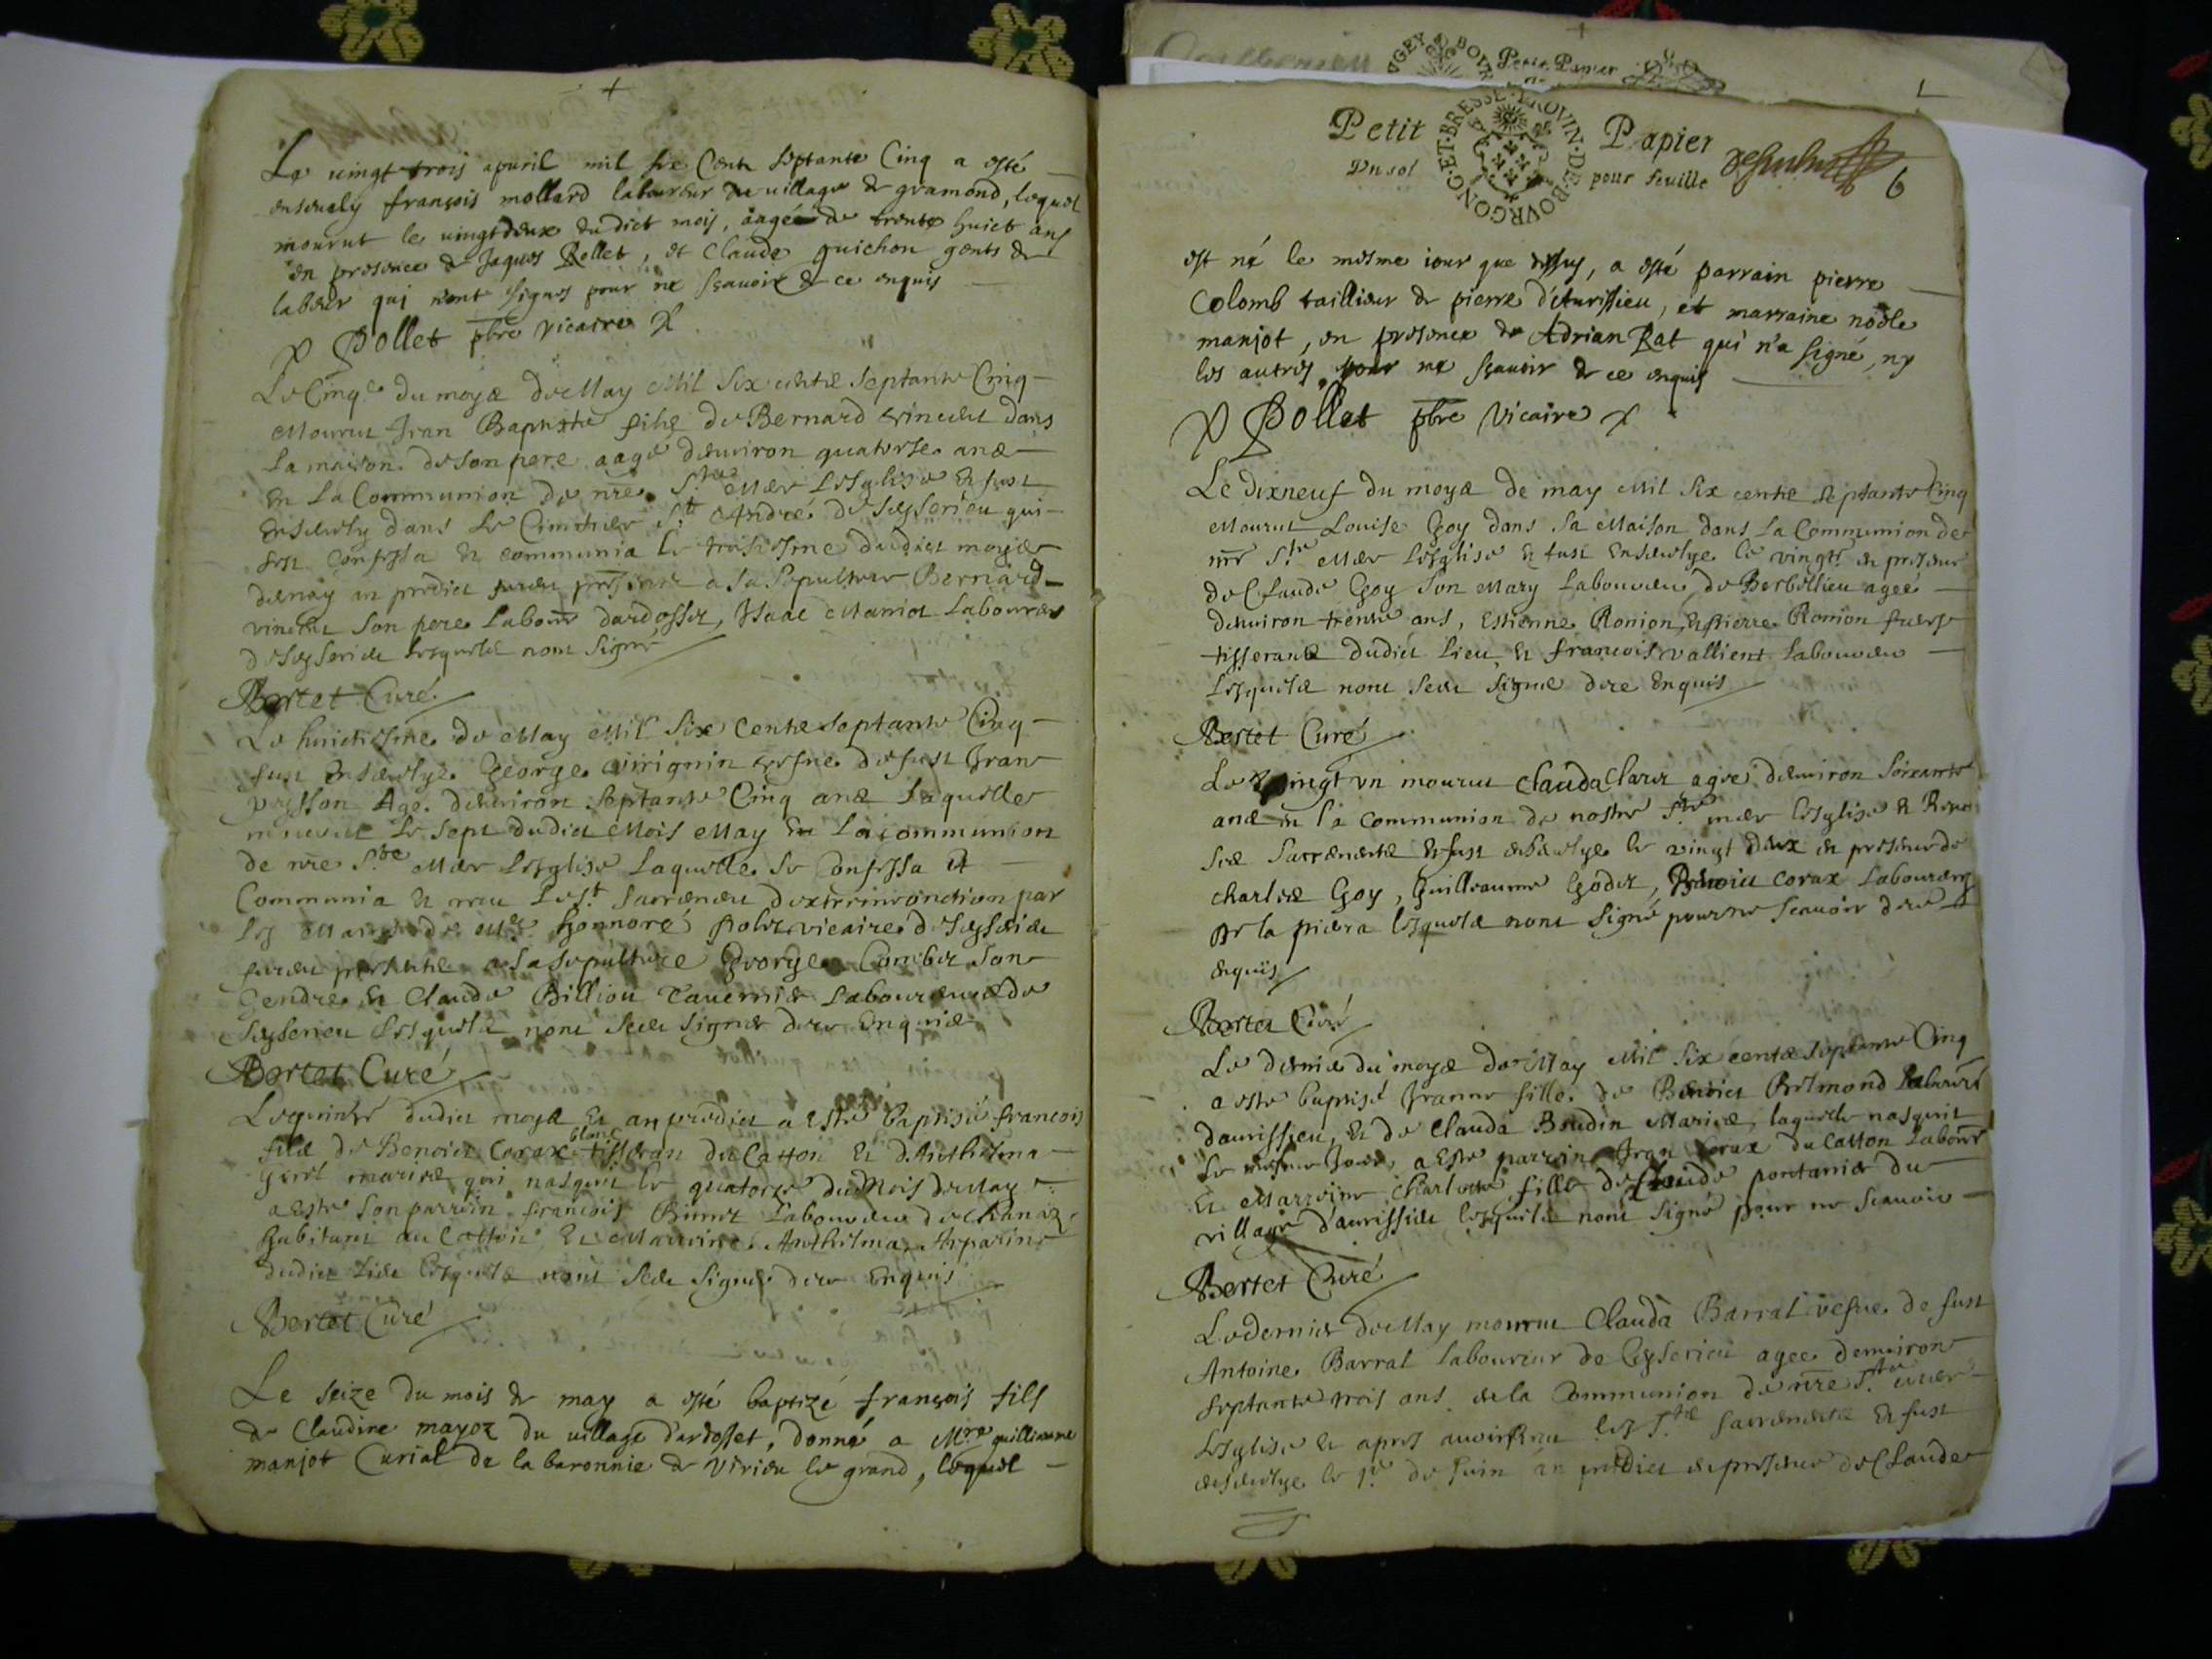 Le vingt trois apuril mil six Cents septante Cinq a esté
enseuely françois mollard laboureur du village de gramond, lequel
mourut le vingtdeux dudict mois, aagé de trente huict ans
en presence de Jaques Rollet, et Claude guichon gents de
labeur qui n'ont signes pour ne sçauoir de ce enquis
Pollet pbre vicaire
Le Cinqe du moys de May Mil Six cents septante Cinq
Mourut Jean Baptiste fils de Bernard vincent dans
La maison de son pere aagé denuiron quatorse ans
En La Communion de nre Ste Mere Lesglise Et fust
Enseuely dans Le Cimetiere St André de Seyserieu qui
sest Confessa Et communia le troisiesme dudict moys
an predict presens a sa sepulture Bernard
vincent son pere dardosset, Isaac Laboureur
de Seyserieu lesquels nont signé
Bertet Curé
Le huictiesme de May Mil Six Cents septante Cinq
fust Enseuelye George vefue de fust Jean
Age denuiron septante Cinq ans Laquelle
mourut Le sept dudict Mois May En La communion
de nre Ste Mere Lesglise Laquelle se Confessa et
Communia Et receu Le St sacrement dextreme onction par
les Mains de Mre honnoré Polet vicaire de Seyserieu
furent presents a sa sepulture George Combet son
Gendre et Claude Billion Tauernier Laboureurs de
Seyserieu Lesquels nont sceu signer dece Enquis
Bertet Curé
Le quinze dudict moys Et an predict a Esté baptisé francois
fils de Benoict Corax blanc tisseran du Catton Et dAnthelma
mariés qui nasquit le quatorze du Mois de May
a Esté son parrein francois Laboureur
habitant au Catton Et Marreine Anthelma
dudict Lieu Lesquels nont sceu signer dece Enquis
Bertet Curé
Le seize du mois de may a esté baptizé françois fils
de Claudine mayoz du village d'ardosset, donné a Mre guilliaume
manjot Curial de la baronnie de Virieu le grand, lequel
Petit Papier
Vn sol pour feuille
BOVRGONG·ET·BRESSE·PROVIN·DE
6
est né le mesme iour que dessus, a esté parrain pierre
Colomb taillieur de pierre d'Aurissieu, et marraine noële
manjot, en presence de Adrian Rat qui n'a signé, ny
les autres pour ne sçauoir de ce enquis
Pollet pbre Vicaire
Le dixneuf du moys de may Mil Six cents septante Cinq
Mourut Louise Goy dans sa Maison dans La Communion de
nre Ste Mere Lesglise Et fust Enseuelye le vingt en presence
de Claude Goy son Mary Laboureur de Berbellieu ageé
denuiron trente ans, Estienne Ronion, Et pierre Ronion
tisserants dudict Lieu, Et francois vallient Laboureur
Lesquels nont sceu signé dece Enquis
Bertet Curé
Le vingt vn mourut Clauda Claret agée denuiron soixante
ans en la communion de nostre Ste mere lesglise Et
Sacrements Et fust enseuelye le vingt deux en presence de
Charles Goy, Guilleaume Godet, Benoict Corax Laboureurs
lesquels nont signé pour ne scauoir dece
enquis
Bertet Curé
Le dernier du moys de May Mil Six cents septante Cinq
a esté baptisé Jeanne fille de Benoict
daurissieu, Et de Clauda Boudin Mariés, laquelle nasquit
le mesme Jour, a Esté parrein Jean Corax du Catton
Et Marreine Charlotte fille de Claude pontanier du
village d'aurissieu lesquels nont signé pour ne scauoir
Bertet Curé
Le dernier de May mourut Clauda Barral vefue de fust
Antoine Barral laboureur de Ceyserieu agee denuiron
septante trois ans en la Communion de nre Ste mere
Lesglise Et apres auoir receu les Sts sacrements Et fust
enseuelye le 1er de Juin an predict en presence de Claude